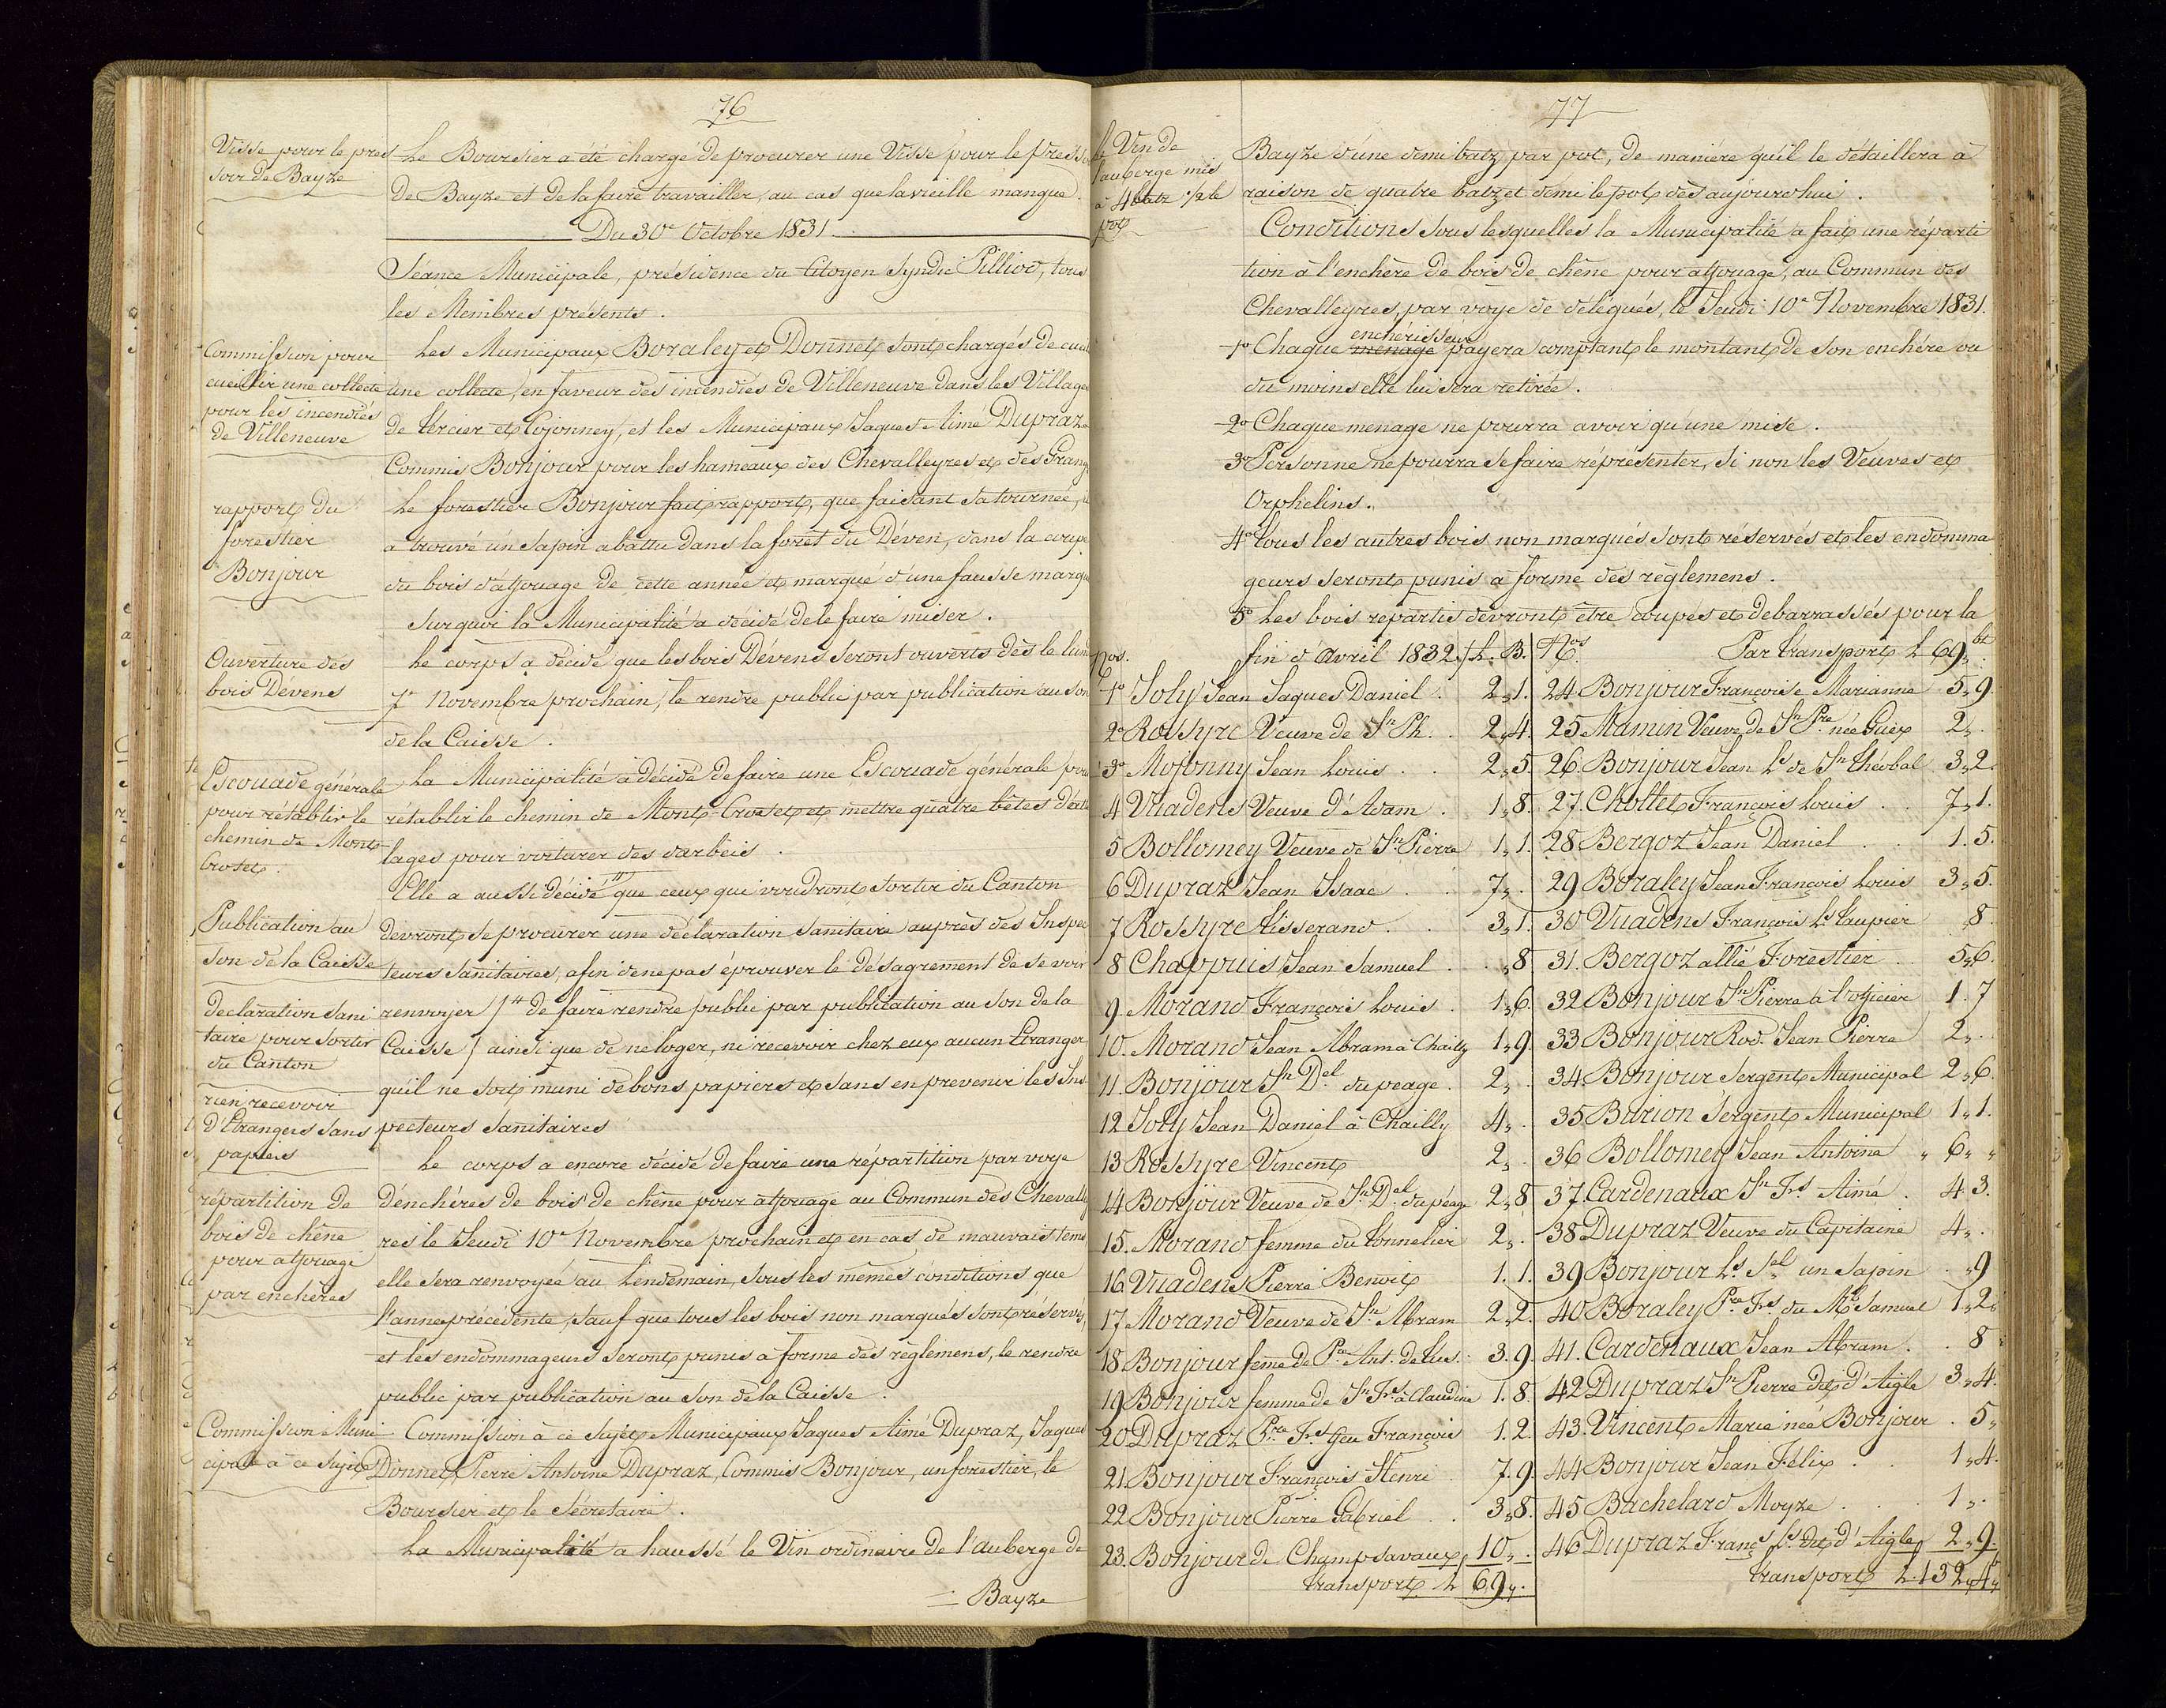 76
Visse pour le pres
soir de Bayze
Le Boursier a été chargé de procurer une Visse pour le presso
de Bayze et de la faire travailler, au cas que la vieille manque.
Du 30e Octobre 1831
Séance Municipale, présidence du Citoyen Syndic Pilliod, tous
les Membres présents.
Commission pour
cueillir une collecte
pour les incendiés
de Villeneuve
Les Municipaux Boraley et Donnet sont chargés de cueil
une collecte, en faveur des incendiés de Villeneuve dans les Village
de tercier et Cojonney, et les Municipaux Jaques Aimé Dupraz
Commis Bonjour pour les hameaux des Chevalleyres et des Grang
rapport du
forestier
Bonjour
Le forestier Bonjour fait rapport, que faisant sa tournée,
a trouvé un sapin abattu dans la forêt du Déven, dans la coupe
du bois d'affouage de cette année et marqué d'une fausse marque
sur quoi la Municipalité a décidé de le faire miser.
Ouverture des
bois Dévens
Le corps a décidé que les bois Dévens seront ouverts dès le lun
7e Novembre prochain, le rendre public par publication au son
de la Caisse.
Escouade générale
pour rétablir le
chemin de Mont
Croset.
La Municipalité a décidé de faire une Escouade générale pour
rétablir le chemin de Mont-Croset et mettre quatre bêtes d'atte
lages pour voiturer des darbeis.
Publication au
son de la Caisse
Elle a aussi décidé # que ceux qui voudront sortir du Canton
devront se procurer une déclaration sanitaire auprès des Inspec
teurs sanitaires, afin de ne pas éprouver le désagrement de se voir
declaration sani
taire pour sortir
du Canton
renvoyer (# de faire rendre public par publication au son de la
Caisse) ainsi que de ne loger, ni recevoir chez eux aucun Etranger
rien recevoir
d'Etrangers sans
papiers
qu'il ne soit muni de bons papiers et sans en prevenir les Ins
pecteurs sanitaires
répartition de
bois de chêne
pour affouage
par enchères
Le corps a encore décidé de faire une répartition par voye
d'enchères de bois de chêne pour affouage au Commun des Chevalley
res le Jeudi 10e Novembre prochain et en cas de mauvais tems
elle sera renvoyée au Lendemain, sous les mêmes conditions que
l'année précédente, sauf que tous les bois non marqués sont réservés,
et les endommageurs seront punis à forme des règlemens, le rendre
public par publication au son de la Caisse.
Commission Muni
cipale à ce sujet
Commission à ce sujet Municipaux Jaques Aimé Dupraz, Jaques
Donnet, Pierre Antoine Dupraz, Commis Bonjour, un forestier, le
Boursier et le Sécretaire.
La Municipalité a haussé le Vin ordinaire de l'auberge de
Bayze
77
Vin de
l'auberge mis
à 4 batz 1/2 le
pot
Bayze d'une demi batz par pot, de maniere qu'il le détaillera à
raison de quatre batz et demi le pot dès aujourd'hui.
Conditions sous lesquelles la Municipalité a fait une réparti
tion à l'enchère de bois de chêne pour affouage, au Commun des
Chevalleyres, par voye de délégués, le Jeudi 10e Novembre 1831.
enchérisseur
1o Chaque menage payera comptant le montant de son enchère ou
du moins elle lui sera retirée.
2o Chaque menage ne pourra avoir qu'une mise.
3o Personne ne pourra se faire réprésenter, si non les Veuves et
Orphelins.
4o tous les autres bois non marqués sont réservés et les endomma
geurs seront punis à forme des règlemens.
5o Les bois repartis devront être coupés et debarrassés pour la
fin d'avril 1832. / L. B.
Nos.
1o Joly Jean Jaques Daniel. 2„1.
2o Rossyre Veuve de Jn Ph. 2„4.
3o Mojonny Jean Louis 2„5.
4 Vuadens Veuve d'Adam 1„8.
5 Bollomey Veuve de Jn Pierre 1„1.
6 Dupraz Jean Isaac 7„.
7 Rossyre tisserand. 3„1.
8 Chappuis Jean Samuel „8
9 Morand François Louis. 1„6.
10. Morand Jean Abram à Chailly 1„9.
11. Bonjour Jn Del du peage. 2„.
12 Joly Jean Daniel à Chailly 4„.
13 Rossyre Vincent 2„.
14 Bonjour Veuve de Jn Del du péage 2„8
15. Morand femme du tonnelier 2„.
16 Vuadens Pierre Benoit 1.1.
17 Morand Veuve de Jn Abram 2„2.
18 Bonjour feme de Pre Ant. de Luc. 3.9.
19 Bonjour femme de Jn Frs à Claudine 1.8.
20 Dupraz Pre Frs feu François 1.2.
21 Bonjour François Henri 7.9.
22 Bonjour Pierre Gabriel 3„8.
23. Bonjour de Champsavaux 10„.
transport L 69„.
Nos. Par transport L 69„ bz
24 Bonjour Françoise Marianne 5„9.
25 Mamin Veuve de Jn Pre née Guex 2„.
26. Bonjour Jean Ls de Jn theobal 3„2.
27. Chollet François Louis 7„1.
28 Bergoz Jean Daniel 1.5.
29 Boraley Jean François Louis 3„5.
30 Vuadens François Ls taupier „8.
31. Bergoz allié Forestier 5„6.
32 Bonjour Jn Pierre à l'officier 1.7
33 Bonjour Rod. Jean Pierre 2„.
34. Bonjour Sergent Municipal 2„6.
35 Burion Sergent Municipal 1„1.
36 Bollomey Jean Antoine „ 6„ „
37. Cardenaux Jn Frs Aimé. 4.3.
38 Dupraz Veuve du Capitaine 4„.
39 Bonjour Ls Sel un sapin „9
40 Boraley Pre Frs du Mpl Samuel 1„2.
41. Cardenaux Jean Abram. 8
42 Dupraz Jn Pierre dit d'Aigle 3„4.
43. Vincent Marie née Bonjour. 5„
44 Bonjour Jean Félix 1„4.
45 Bachelard Moyze 1„.
46 Dupraz Franç Ls dit d'Aigle 2„9.
transport L. 132„4„